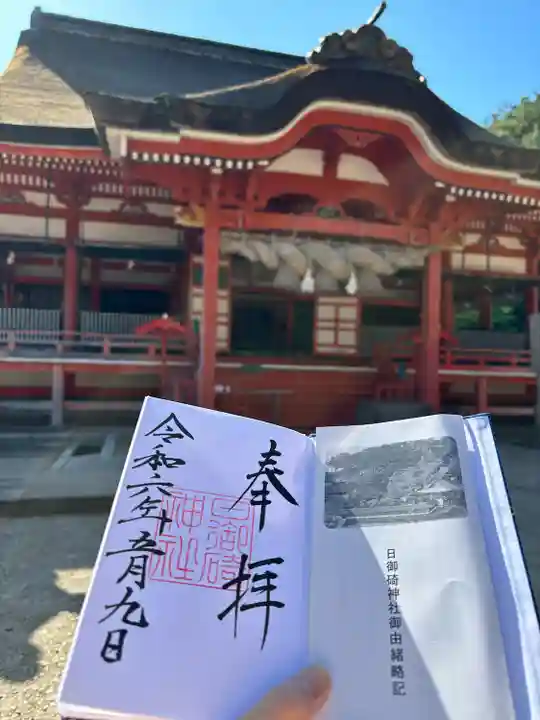 奉拝
日御碕神社
令和六年五月九日
日御碕神社御由緒略記